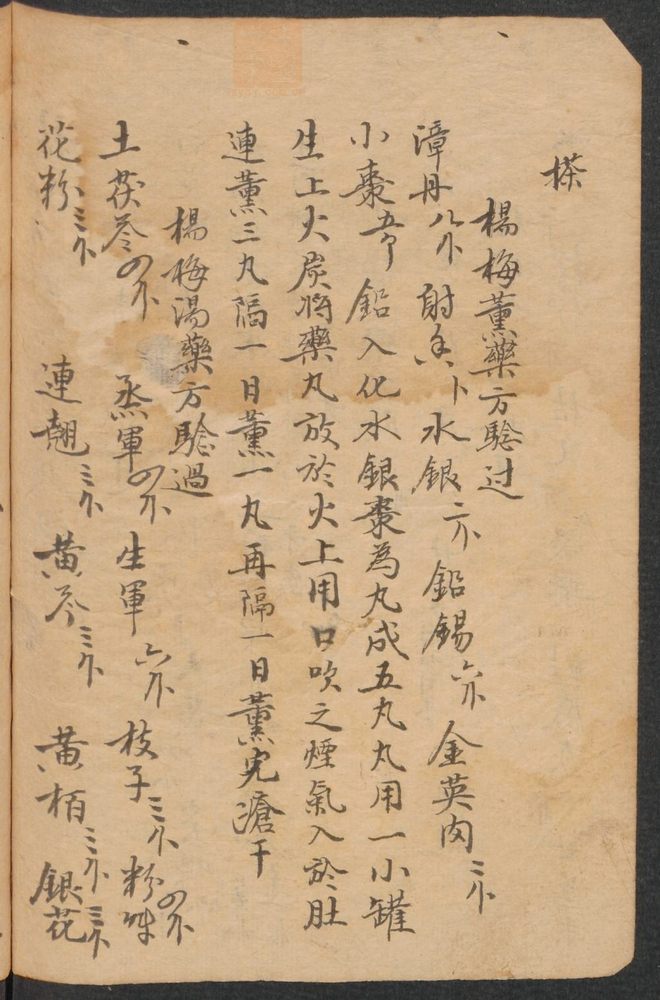 搽
楊梅薰藥方驗过
漳丹八个 射香卜 水銀二个 鉛錫六个 金英肉三个
小棗 鉛入化水銀棗為丸成五丸丸用一小罐
生上火炭将藥丸放於火上用口吹之煙氣入於肚
連薰三丸隔一日薰一丸再隔一日薰完瘡干
楊梅湯藥方驗過
土茯苓四个 烝軍四个 生軍六个 枝子三个 粉 四个
花粉三个 連翹三个 黄芩三个 黄栢三个 銀花三个